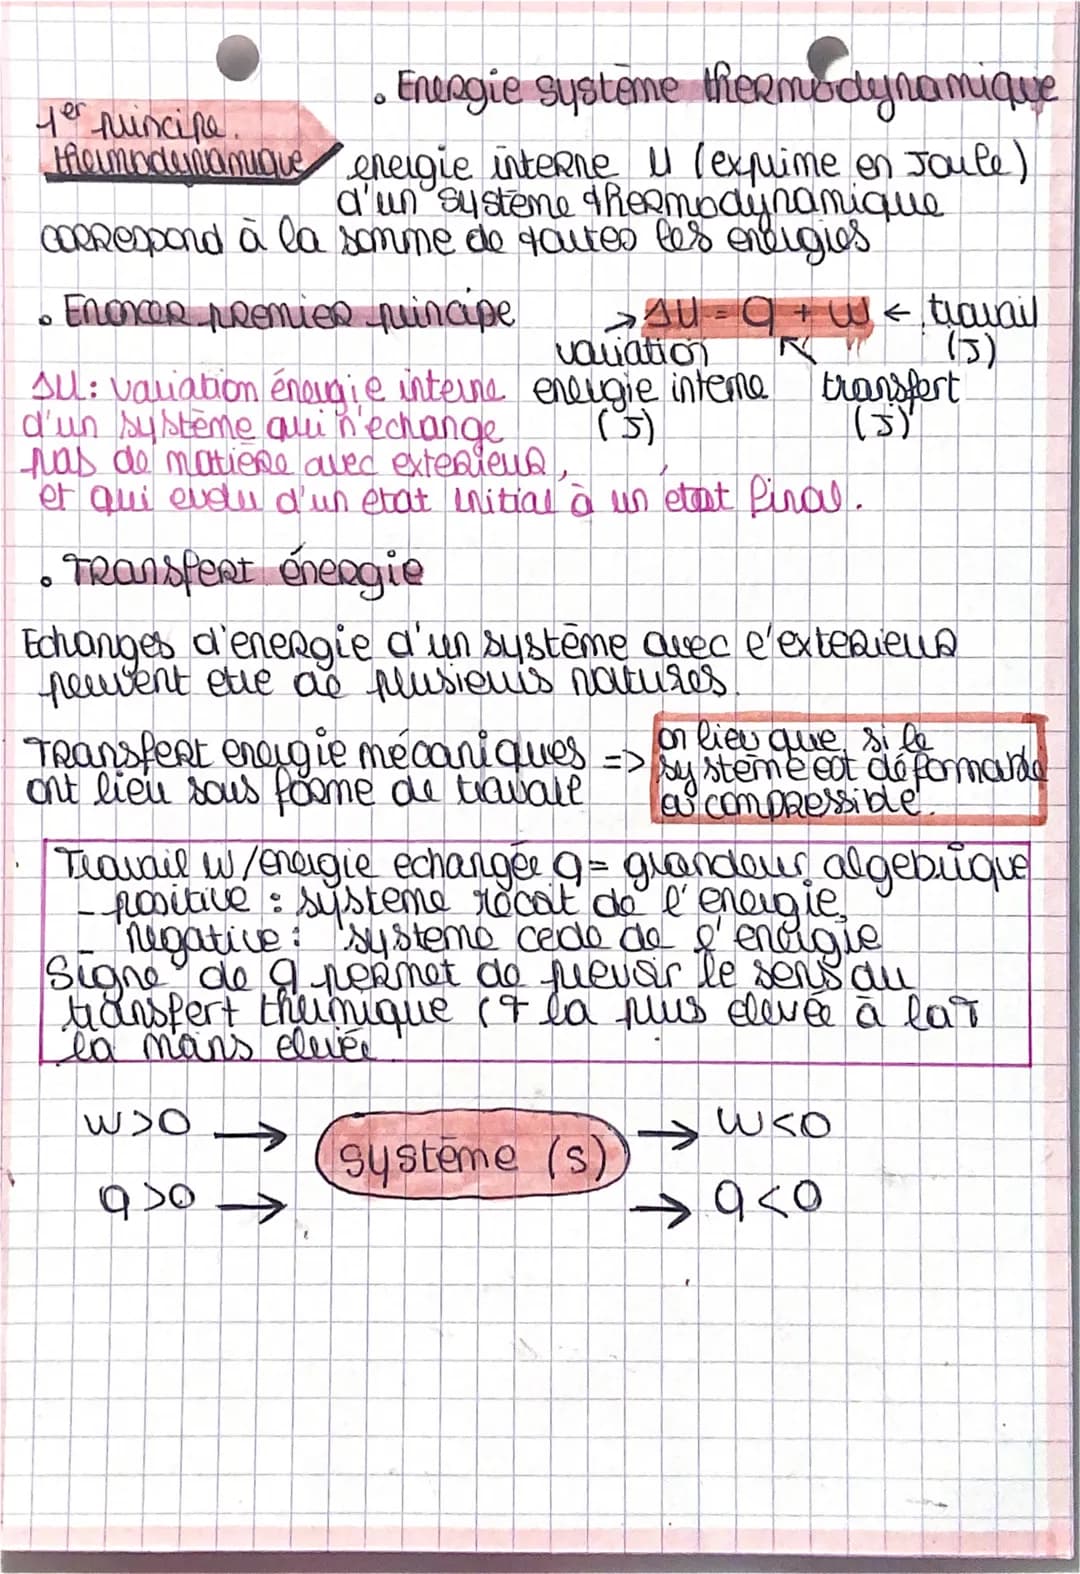 • Energie système thermodynamique
1er principe
thermodynamique
energie interne U (exprime en Joule)
d'un système thermodynamique
correspond à la somme de toutes les energies
• Enoncer premier principe
→ ΔU = Q + W ← travail
(J)
variation
energie interne
(J)
transfert
(J)
ΔU: variation énergie interne
d'un système qui n'echange
pas de matière avec exterieur,
et qui evolu d'un etat initial à un état final.
• Transfert énergie
Echanges d'energie d'un système avec l'exterieur
peuvent etre de plusieurs natures.
Transfert energie mécaniques =>
ont lieu sous forme de travail
on lieu que si le
système est déformable
ou compressible.
Travail W/energie echangée Q = grandeur algebrique
- positive : systeme récoit de l'energie
- negative : systeme cede de l'energie
Signe de Q permet de prevoir le sens du
transfert thermique (T la plus elevée à la T
la moins elevée
W>0 →
Q>0 →
système (S)
→ W<0
→ Q<0